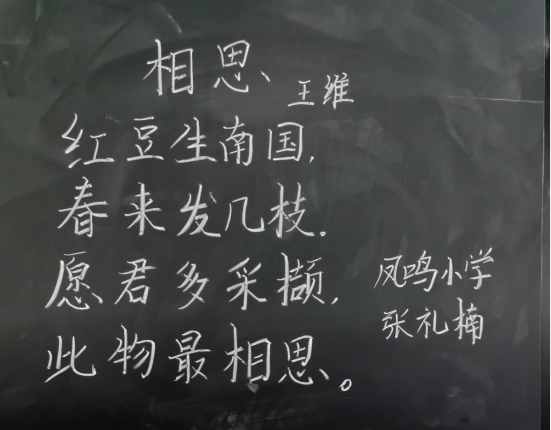 相思
王维
红豆生南国,
春来发几枝。
愿君多采撷,
此物最相思。
凤鸣小学
张礼楠